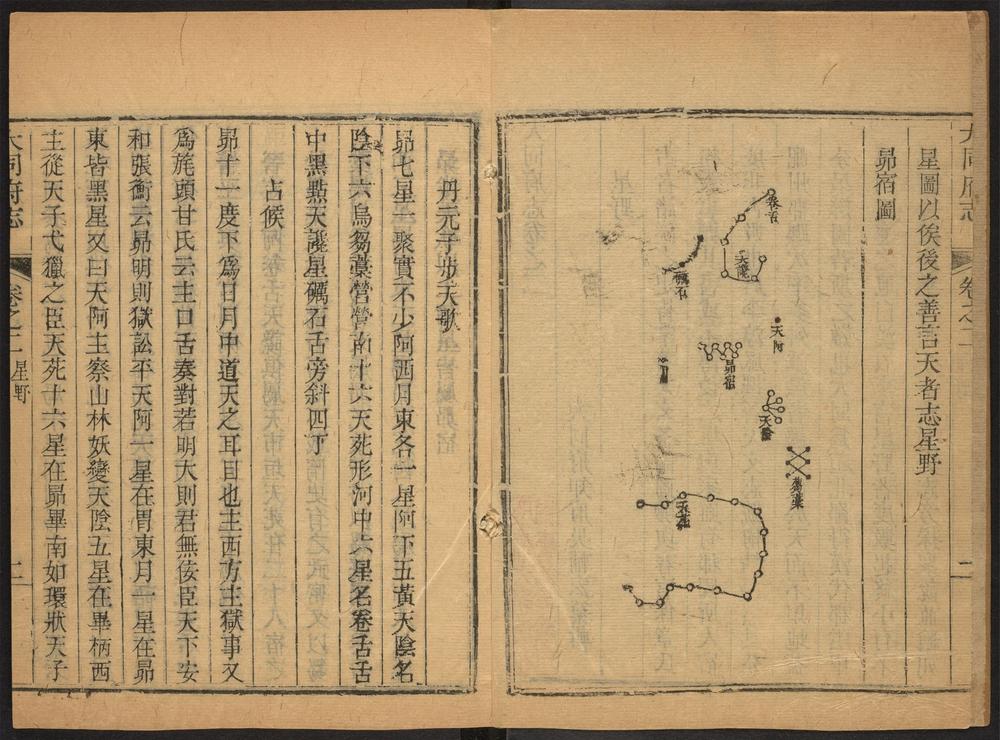 大同府志
卷之二
二
星圖以俟後之善言天者志星野
昴宿圖
卷舌
天讒
礪石
天阿
昴宿
月
天陰
蒭藁
天苑
丹元子步天歌
昴七星一聚實不少阿西月東各一星阿下五黃天陰名
陰下六烏芻藁營營南十六天苑形河中六星名卷舌舌
中黑點天讒星礪石舌旁斜四丁
占候
昴十一度下爲日月中道天之耳目也主西方主獄事又
爲旄頭甘氏云主口舌奏對若明大則君無佞臣天下安
和張衡云昴明則獄訟平天阿一星在胃東月一星在昴
東皆黑星又曰天阿主察山林妖變天陰五星在畢柄西
主從天子弋獵之臣天苑十六星在昴畢南如環狀天子
大同府志
卷之二
星野
二